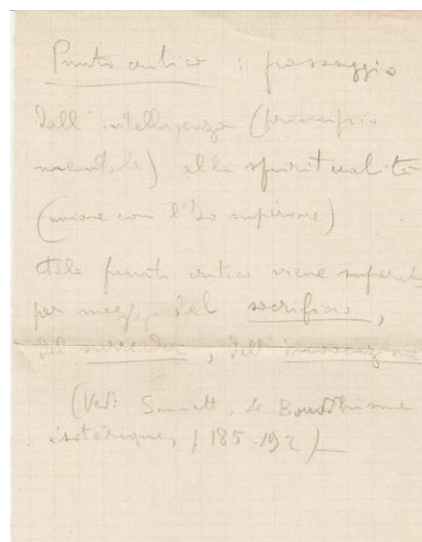 Punto critico : passaggio
dall'intelligenza (principio
mentale) alla spiritualità
(unione con l'Io superiore)
Tale punto critico viene superat
per mezzo del sacrificio,
del surrender, dell'invocazione
(Vedi Sinnett, Le Bouddhisme
ésotérique, p 185-192)